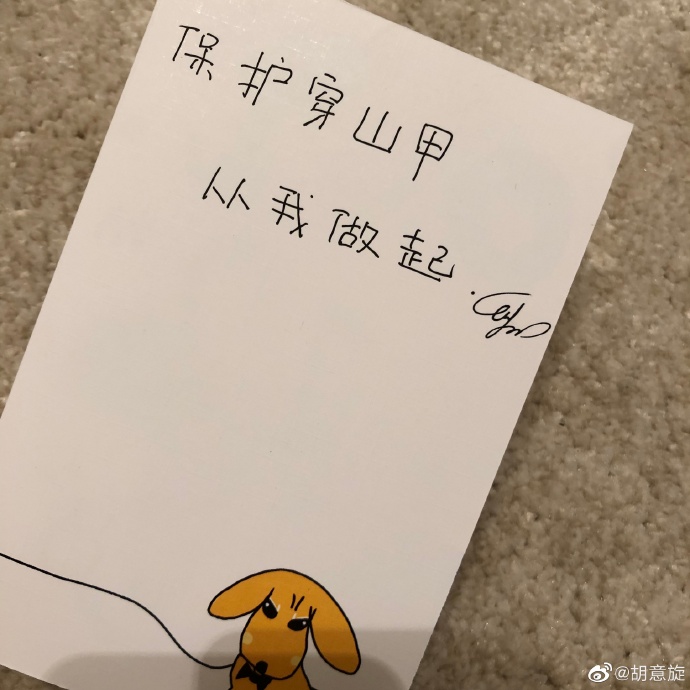 保护穿山甲
从我做起.
@胡意旋